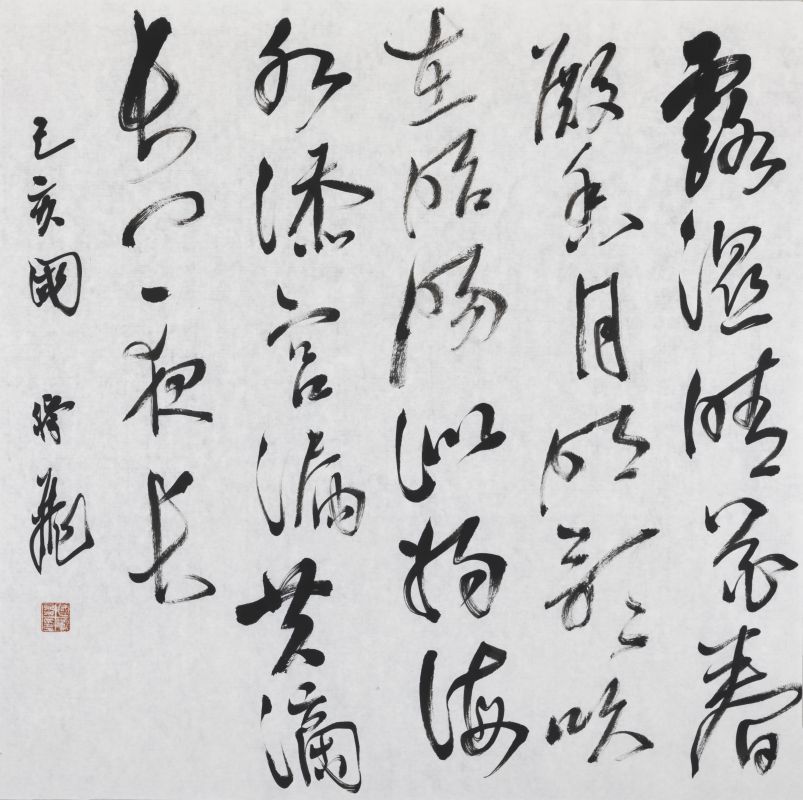 露濕晴花春
殿香月明歌吹
在昭陽似將海
水添宮漏共滴
長門一夜長
己亥國